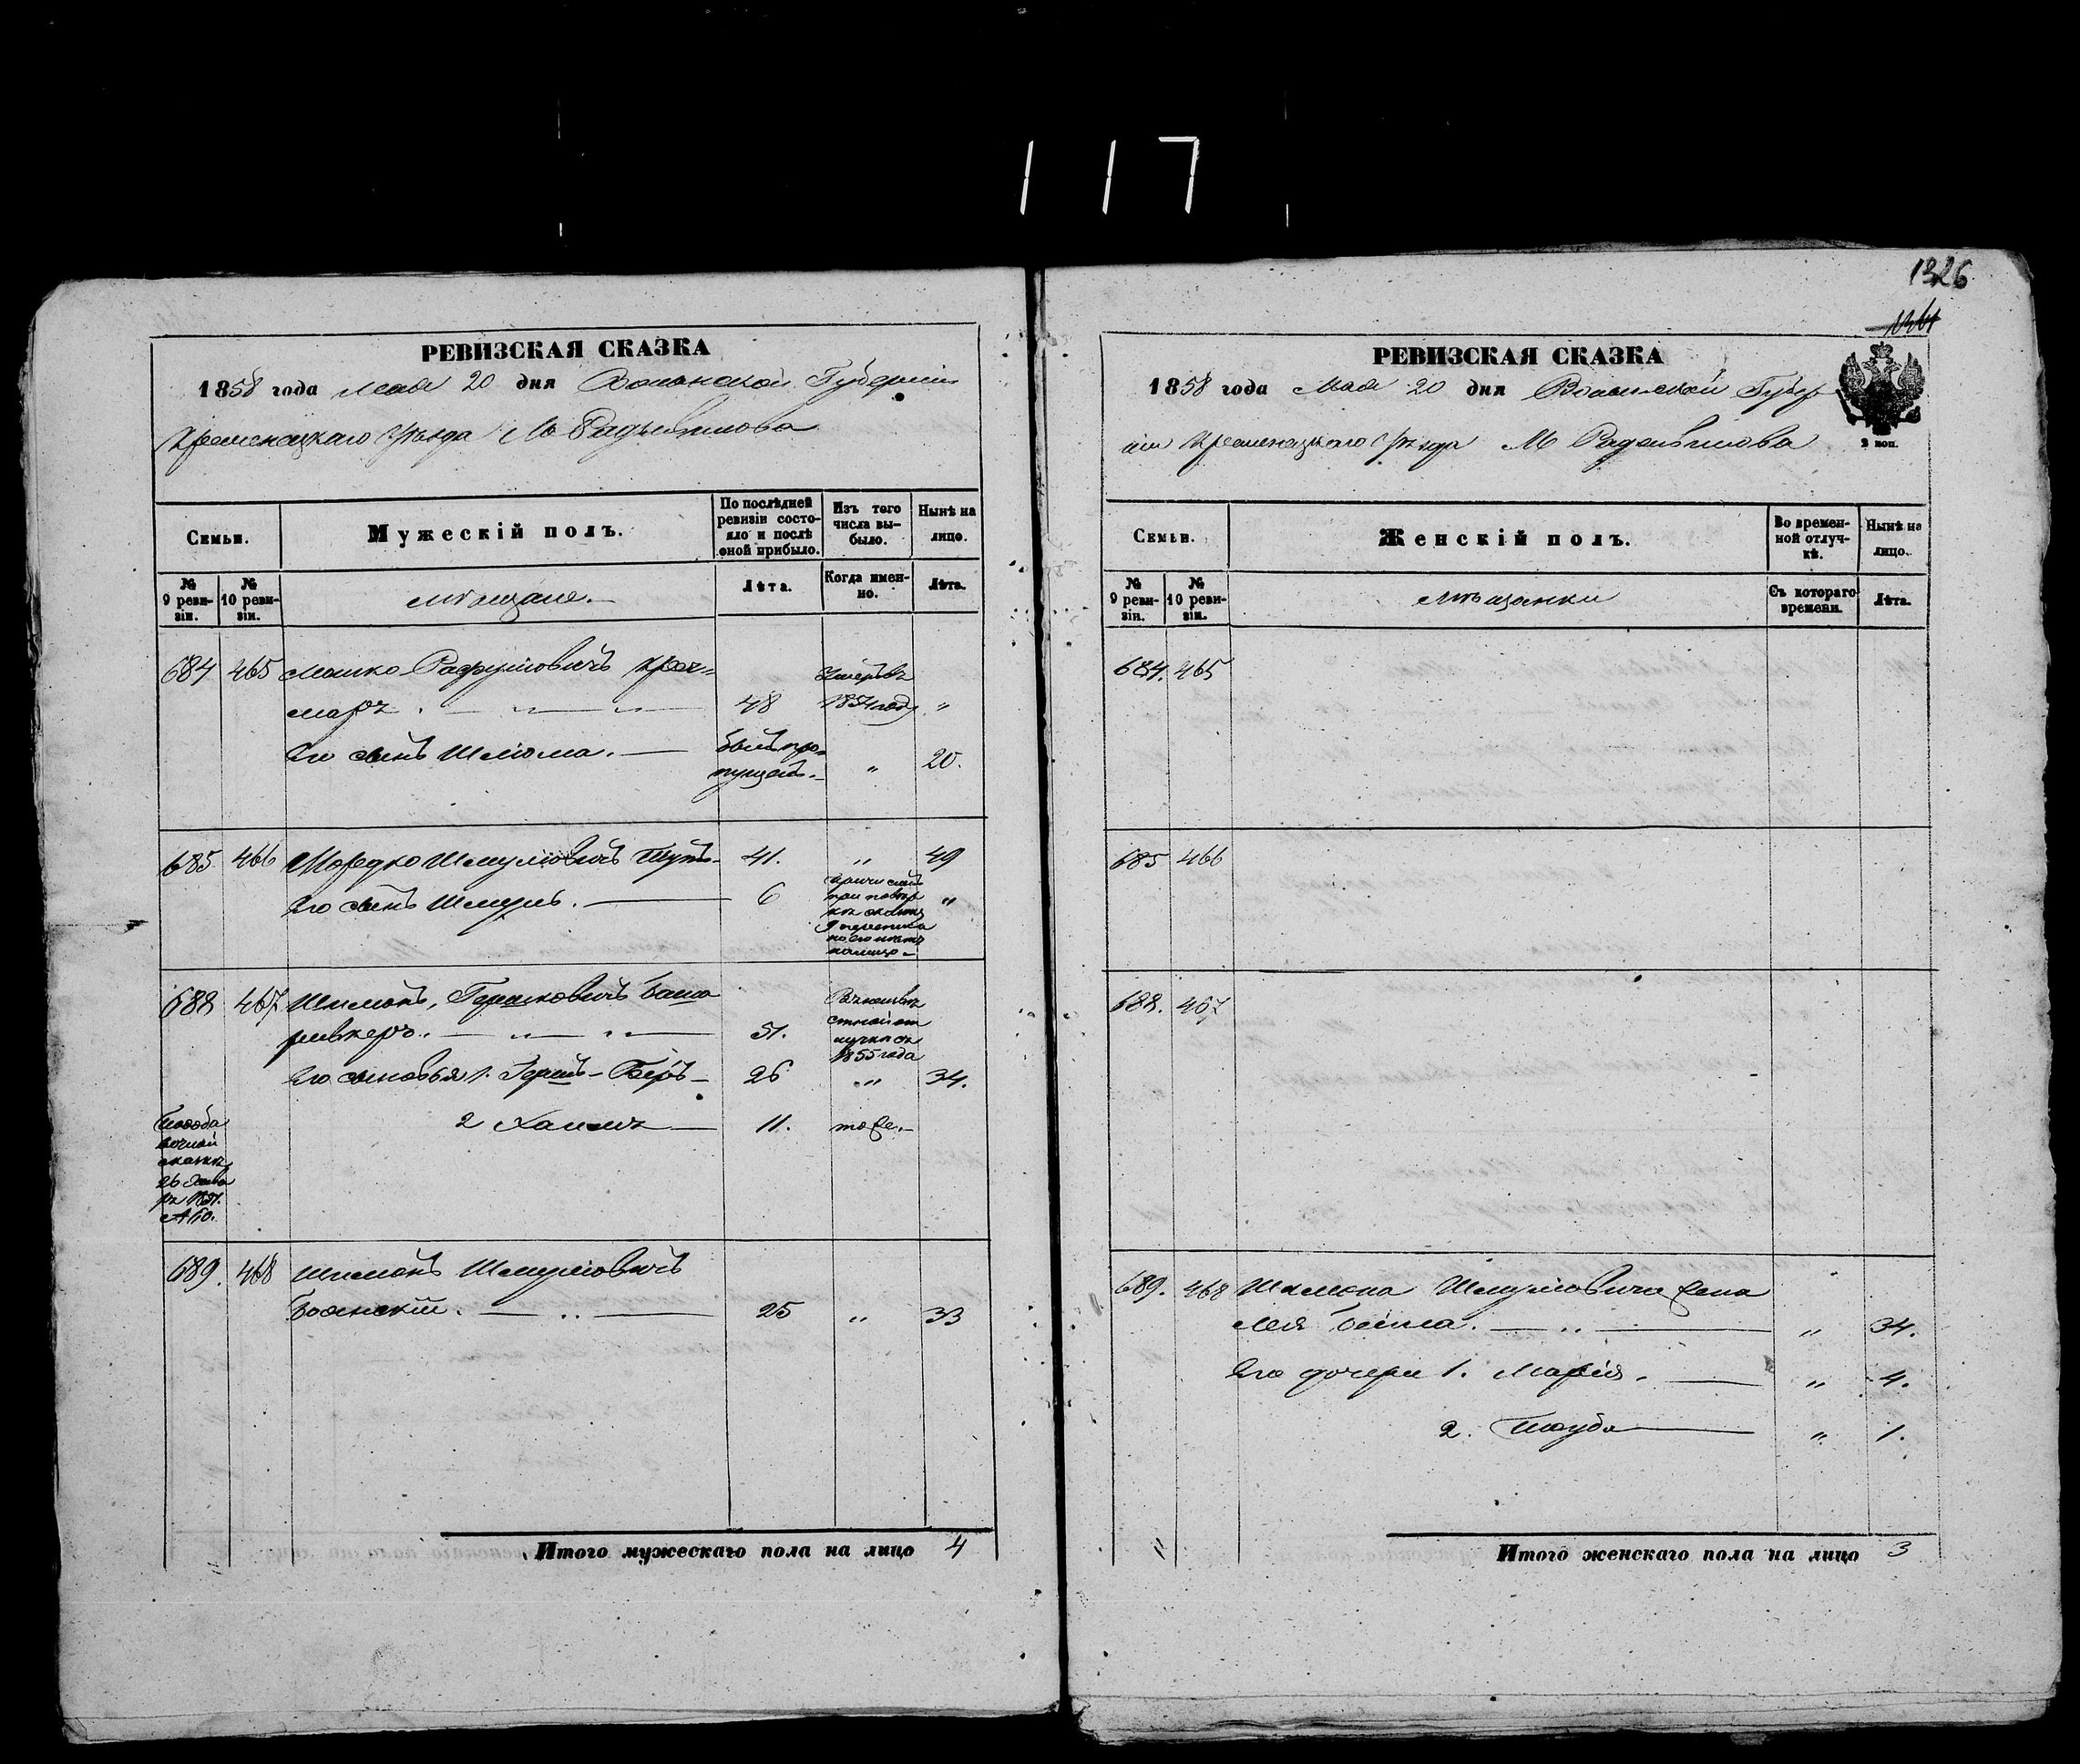 117
1326
РЕВИЗСКАЯ СКАЗКА
1858 года мая 20 дня Волынской Губерніи
Кременецкаго уѣзда М Радзивилова
Семьи.
Мужескій полъ.
По послѣдней ревизіи состояло и послѣ оной прибыло.
Изъ того числа выбыло.
Нынѣ на лицо.
№ 9 ревизіи.
№ 10 ревизіи.
мѣщане.
Лѣта.
Когда именно.
Лѣта.
684 465 Мошко Рафуловичъ Креч=
маръ. 48 умеръ въ 1854 году "
Его сынъ Шлиома. былъ пропущенъ. " 20.
685 466 Мордко Шмуліовичъ 41. " 49
Его сынъ Шмуль. 6 "
688 467 Шимонъ Гершковичъ
51. 1855 года
Его сыновья 1. Гершъ-Беръ 26 " 34.
2 Хаимъ 11. тоже.
26
689. 468 Шимонъ Шмуліовичъ
25 " 33
Итого мужескаго пола на лицо 4
РЕВИЗСКАЯ СКАЗКА
1858 года Мая 20 дня Волынской Губер
ніи Кременецкаго уѣзда М Радзивилова
2 коп.
Семьи.
Женскій полъ.
Во временной отлучкѣ.
Нынѣ на лицо.
№ 9 ревизіи.
№ 10 ревизіи.
мѣщанки
Съ котораго времени.
Лѣта.
684. 465
685 466
688. 467
689. 468 Шимона Шмуліовича жена
Лея Бейла. " 34.
Его дочери 1. Марія. " 4.
2. Тауба " 1.
Итого женскаго пола на лицо 3